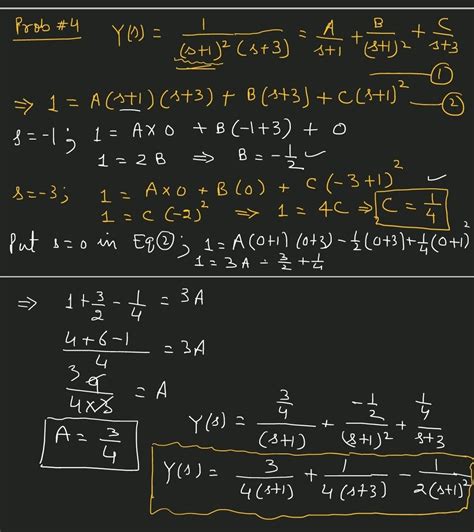 Prob #4 Y(s) = 1/((s+1)² (s+3)) = A/(s+1) + B/(s+1)² + C/(s+3) ①
⇒ 1 = A(s+1)(s+3) + B(s+3) + C(s+1)² ②
s=-1; 1 = A×0 + B(-1+3) + 0
1 = 2B ⇒ B = -1/2 ✓
s=-3; 1 = A×0 + B(0) + C(-3+1)² ✓
1 = C(-2)² ⇒ 1 = 4C ⇒ C = 1/4
Put s=0 in Eq②; 1 = A(0+1)(0+3) - 1/2(0+3) + 1/4(0+1)²
1 = 3A - 3/2 + 1/4
⇒ 1 + 3/2 - 1/4 = 3A
(4+6-1)/4 = 3A
3 9/(4×3) = A
A = 3/4
Y(s) = (3/4)/(s+1) + (-1/2)/(s+1)² + (1/4)/(s+3)
Y(s) = 3/(4(s+1)) + 1/(4(s+3)) - 1/(2(s+1)²)